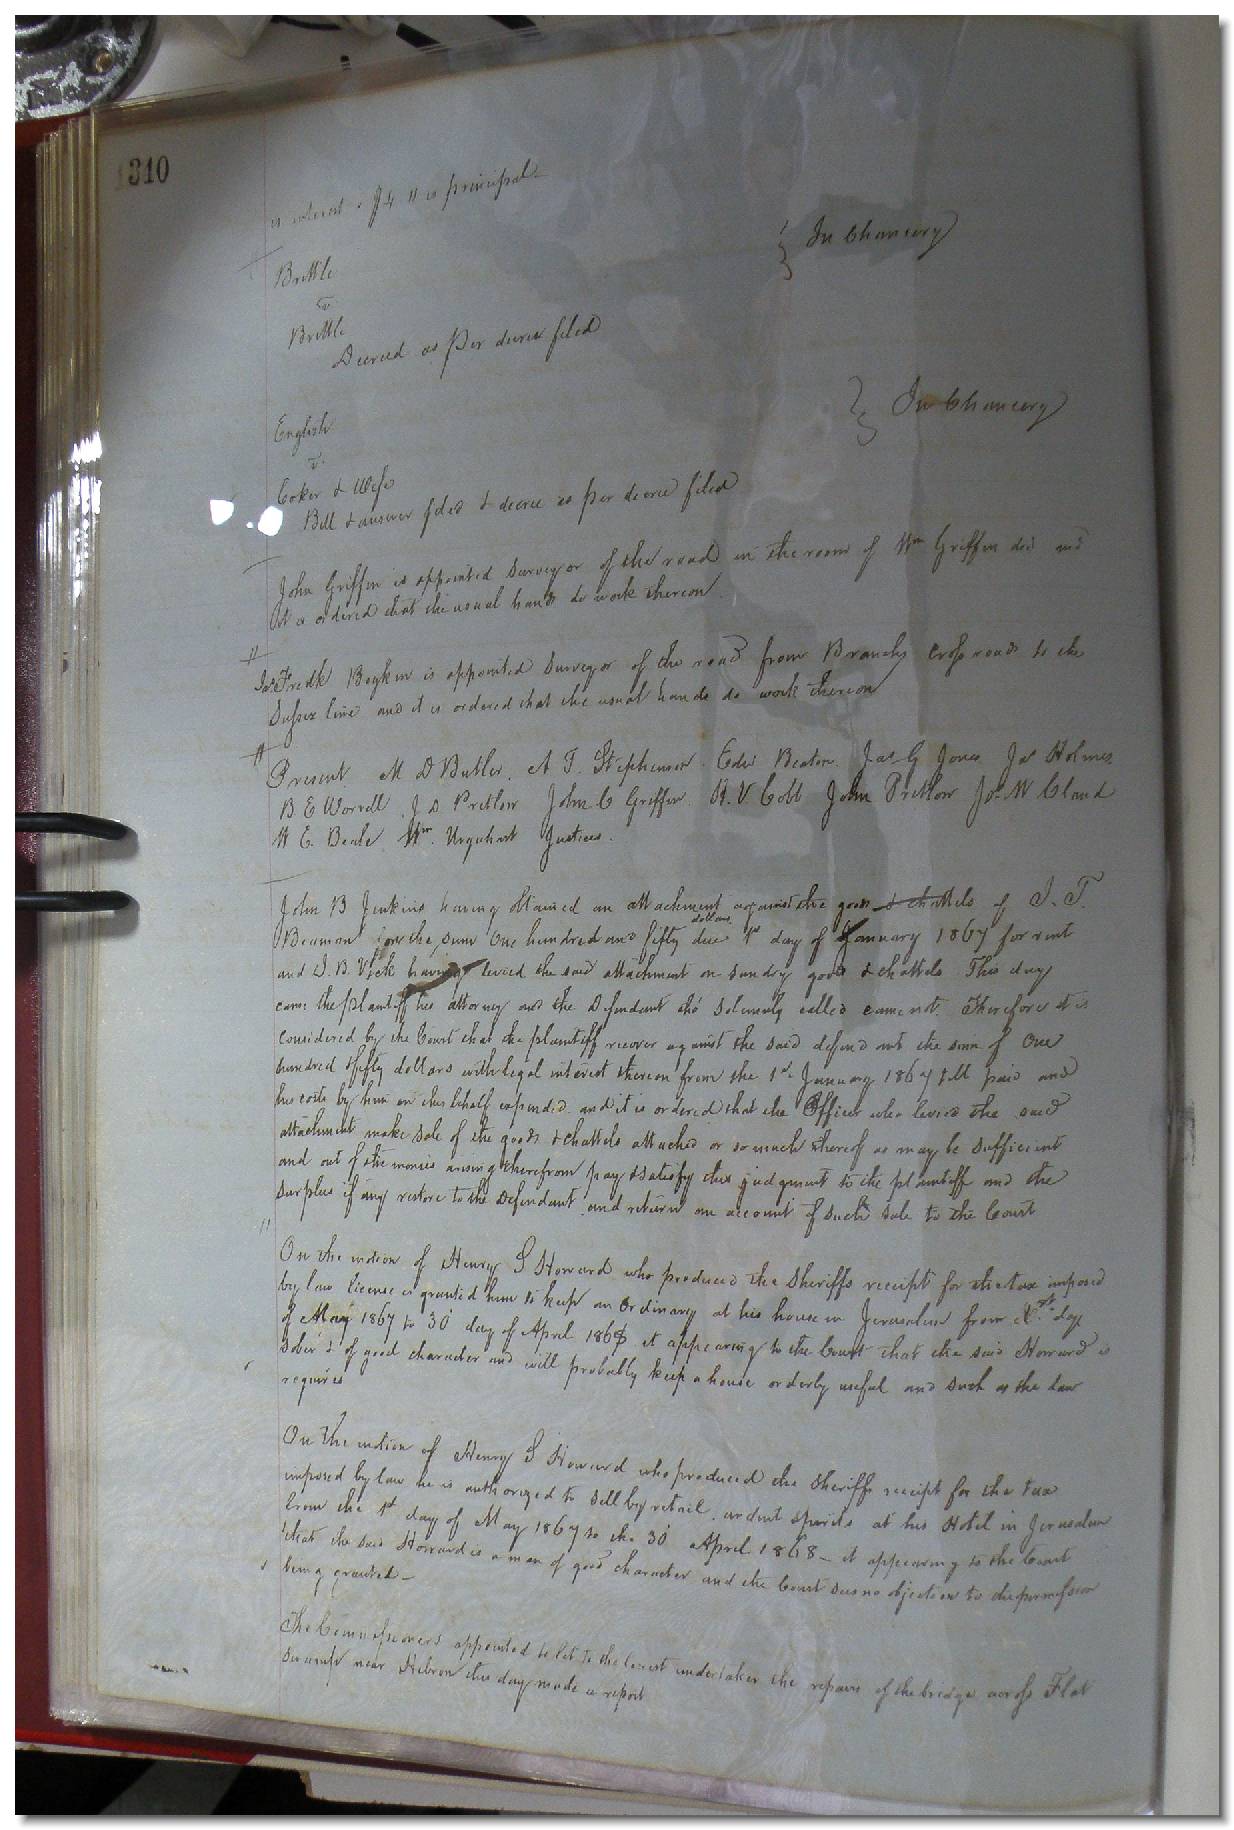 310
is interest & $4 11 is principal
Brittle
v
Brittle
} In Chancery
Decreed as per decree filed
English
v.
Coker & Wife
} In Chancery
Bill & answer filed & decree as per decree filed
John Griffin is appointed Surveyor of the road in the room of Wm Griffin decd and
it is ordered that the usual hands do work thereon.
Fredk Boykin is appointed Surveyor of the road from Branchs Cross roads to the
Sussex line and it is ordered that the usual hands do work thereon
Present M D Butler, A T. Stephenson. Edw Beaton. Jas G Jones Jas Holmes
B E Worrell, J D Pretlow John C Griffin R. V Cobb John Pretlow Jo. W Claud
W E. Beale, Wm. Urquhart Justices.
John B Jenkins having obtained an attachment against the goods & chattels of J. T.
Beaman for the sum One hundred and fifty dollars due 1st day of January 1867 for rent
and J. B. Vick having levied the said attachment on sundry goods & chattels This day
came the plantiff his attorney and the Defendant tho' solemnly called came not. Therefore it is
considered by the Court that the plaintiff recover against the said defendant the sum of One
hundred & fifty dollars with legal interest thereon from the 1st January 1867 till paid and
his costs by him in this behalf expended and it is ordered that the Officer who levied the said
attachment make sale of the goods & chattels attached or so much thereof as may be sufficient
and out of the monies arising therefrom pay & satisfy this judgment to the plaintiff and the
surplus if any restore to the Defendant and return an account of such sale to the Court
On the motion of Henry S Howard who produced the Sheriffs receipt for the tax imposed
by law license is granted him to keep an Ordinary at his house in Jerusalem from 1st day
of May 1867 to 30 day of April 1868 it appearing to the Court that the said Howard is
sober & of good character and will probably keep a house orderly useful and such as the law
requires
On the motion of Henry S Howard who produced the Sheriffs receipt for the tax
imposed by law he is authorized to sell by retail, ardent spirits at his Hotel in Jerusalem
from the 1st day of May 1867 to the 30 April 1868 – it appearing to the Court
that the said Howard is a man of good character and the Court sees no objection to the permission
being granted –
The Commissioners appointed to let to the lowest undertaker the repairs of the bridge across Flat
Swamp near Hebron this day made a report